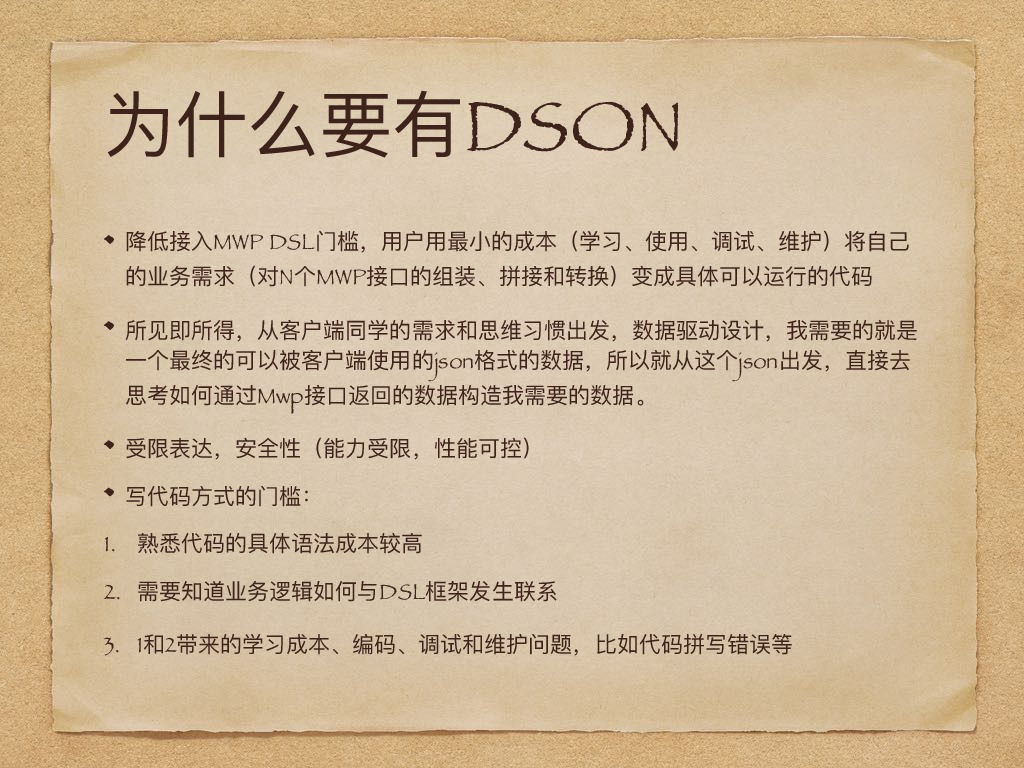 为什么要有DSON
降低接入MWP DSL门槛，用户用最小的成本（学习、使用、调试、维护）将自己
的业务需求（对N个MWP接口的组装、拼接和转换）变成具体可以运行的代码
所见即所得，从客户端同学的需求和思维习惯出发，数据驱动设计，我需要的就是
一个最终的可以被客户端使用的json格式的数据，所以就从这个json出发，直接去
思考如何通过Mwp接口返回的数据构造我需要的数据。
受限表达，安全性（能力受限，性能可控）
写代码方式的门槛：
1. 熟悉代码的具体语法成本较高
2. 需要知道业务逻辑如何与DSL框架发生联系
3. 1和2带来的学习成本、编码、调试和维护问题，比如代码拼写错误等